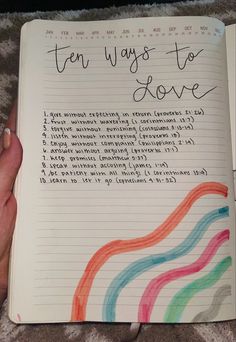 JAN FEB MAR APR MAY JUN JUL AUG SEP OCT NOV DEC
Ten Ways to
Love
1. give without expecting in return (proverbs 21:26)
2. trust without wavering (1 corinthians 13:7)
3. forgive without punishing (colossians 3:13-14)
4. listen without interrupting (proverbs 18)
5. enjoy without complaint (philippians 2:14)
6. answer without arguing (proverbs 17:1)
7. keep promises (matthew 5:37)
8. speak without accusing (james 1:19)
9. be patient with all things (1 corinthians 13:4)
10. learn to let it go (ephesians 4:31-32)